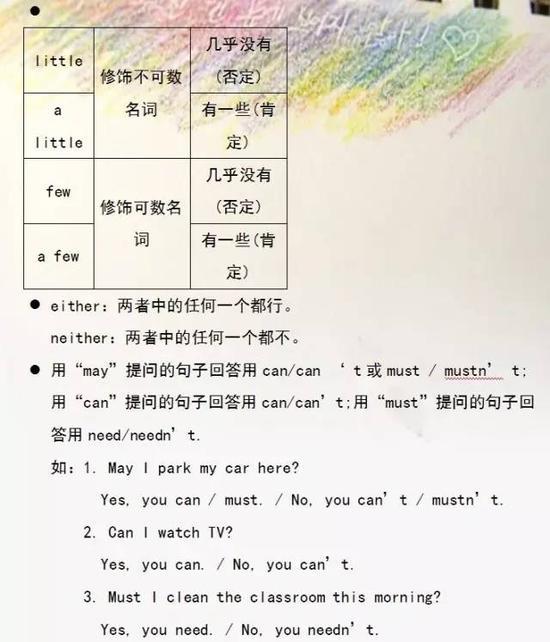 little
修饰不可数名词
几乎没有(否定)
a little
有一些(肯定)
few
修饰可数名词
几乎没有(否定)
a few
有一些(肯定)
● either：两者中的任何一个都行。
neither：两者中的任何一个都不。
● 用“may”提问的句子回答用can/can ‘t或must / mustn’ t;
用“can”提问的句子回答用can/can’t;用“must”提问的句子回
答用need/needn’t.
如：1. May I park my car here?
Yes, you can / must. / No, you can’t / mustn’t.
2. Can I watch TV?
Yes, you can. / No, you can’t.
3. Must I clean the classroom this morning?
Yes, you need. / No, you needn’t.